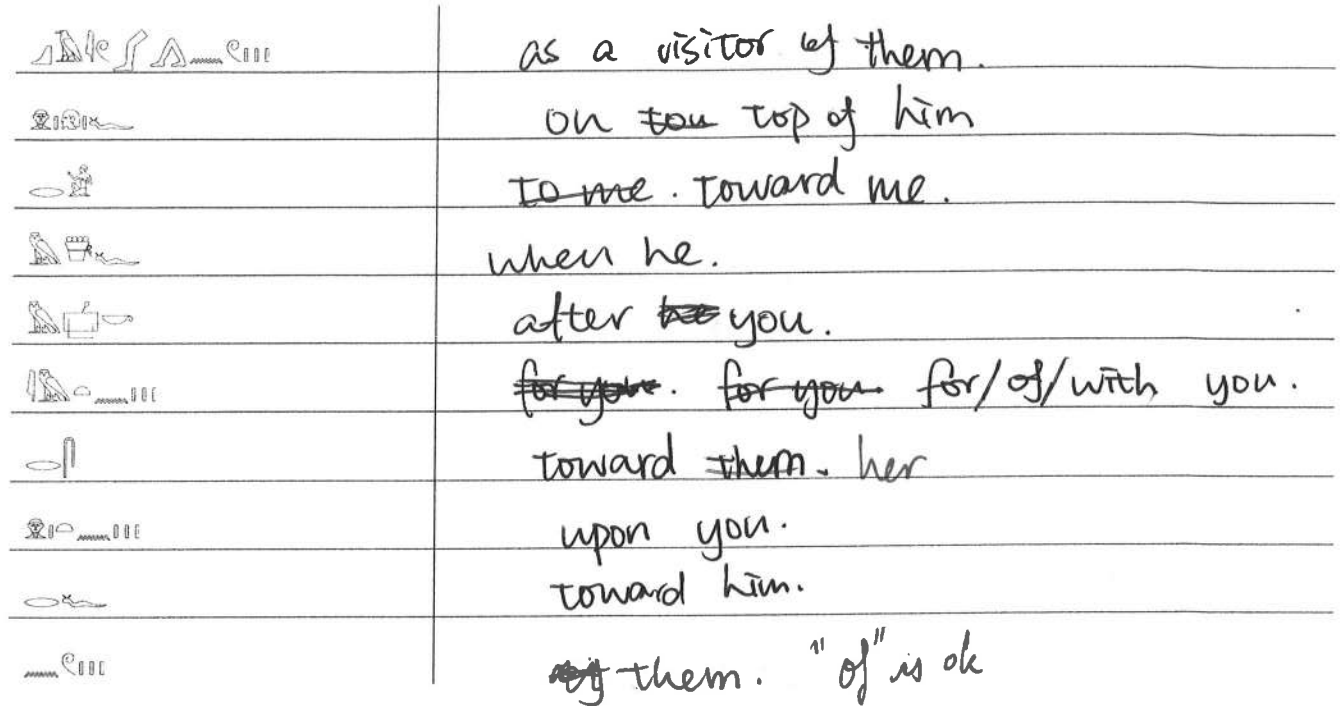 as a visitor of them.
on tou top of him
𓂋𓀀 to me. toward me.
when he.
after he you.
𓇋𓅓𓏏𓈖𓏥 for you. for you for/of/with you.
𓂋𓋴 toward them. her
𓁷𓏤𓏏𓈖𓏥 upon you.
𓂋𓆑 toward him.
𓈖𓏲𓏥 them. "of" is ok